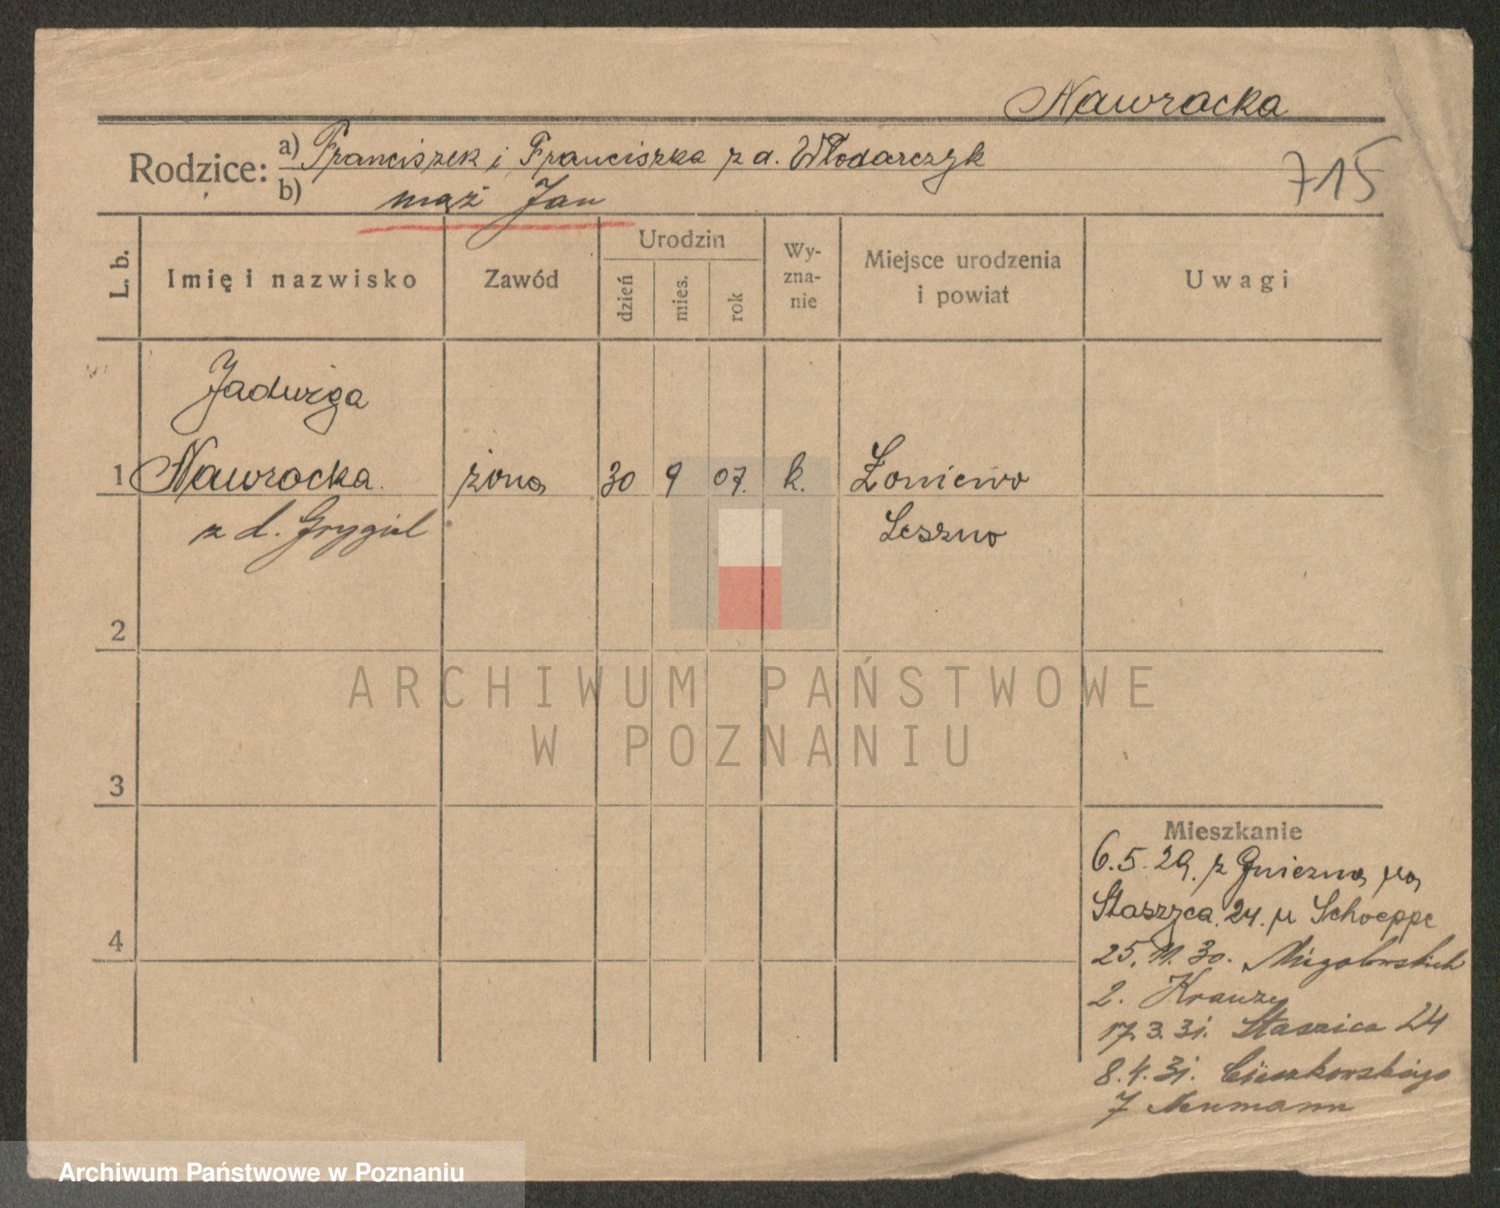 Nawracka
Rodzice: a) Franciszek i Franciszka z d. Włodarczyk
b) mąż Jan
715
L. b.
Imię i nazwisko
Zawód
Urodzin
dzień
mies.
rok
Wy-
zna-
nie
Miejsce urodzenia
i powiat
Uwagi
Jadwiga
1 Nawracka. żona 30 9 07. k. Łoniewo
z d. Grygiel Leszno
2
3
4
Mieszkanie
6.5.29. z Gniezna na
Staszyca 24. u Schoeppe
25.11.30.
2. Krauze
17.3.31. Staszica 24
8.4.31. Cieszkowskiego
7 Neumann
ARCHIWUM PAŃSTWOWE
W POZNANIU
Archiwum Państwowe w Poznaniu